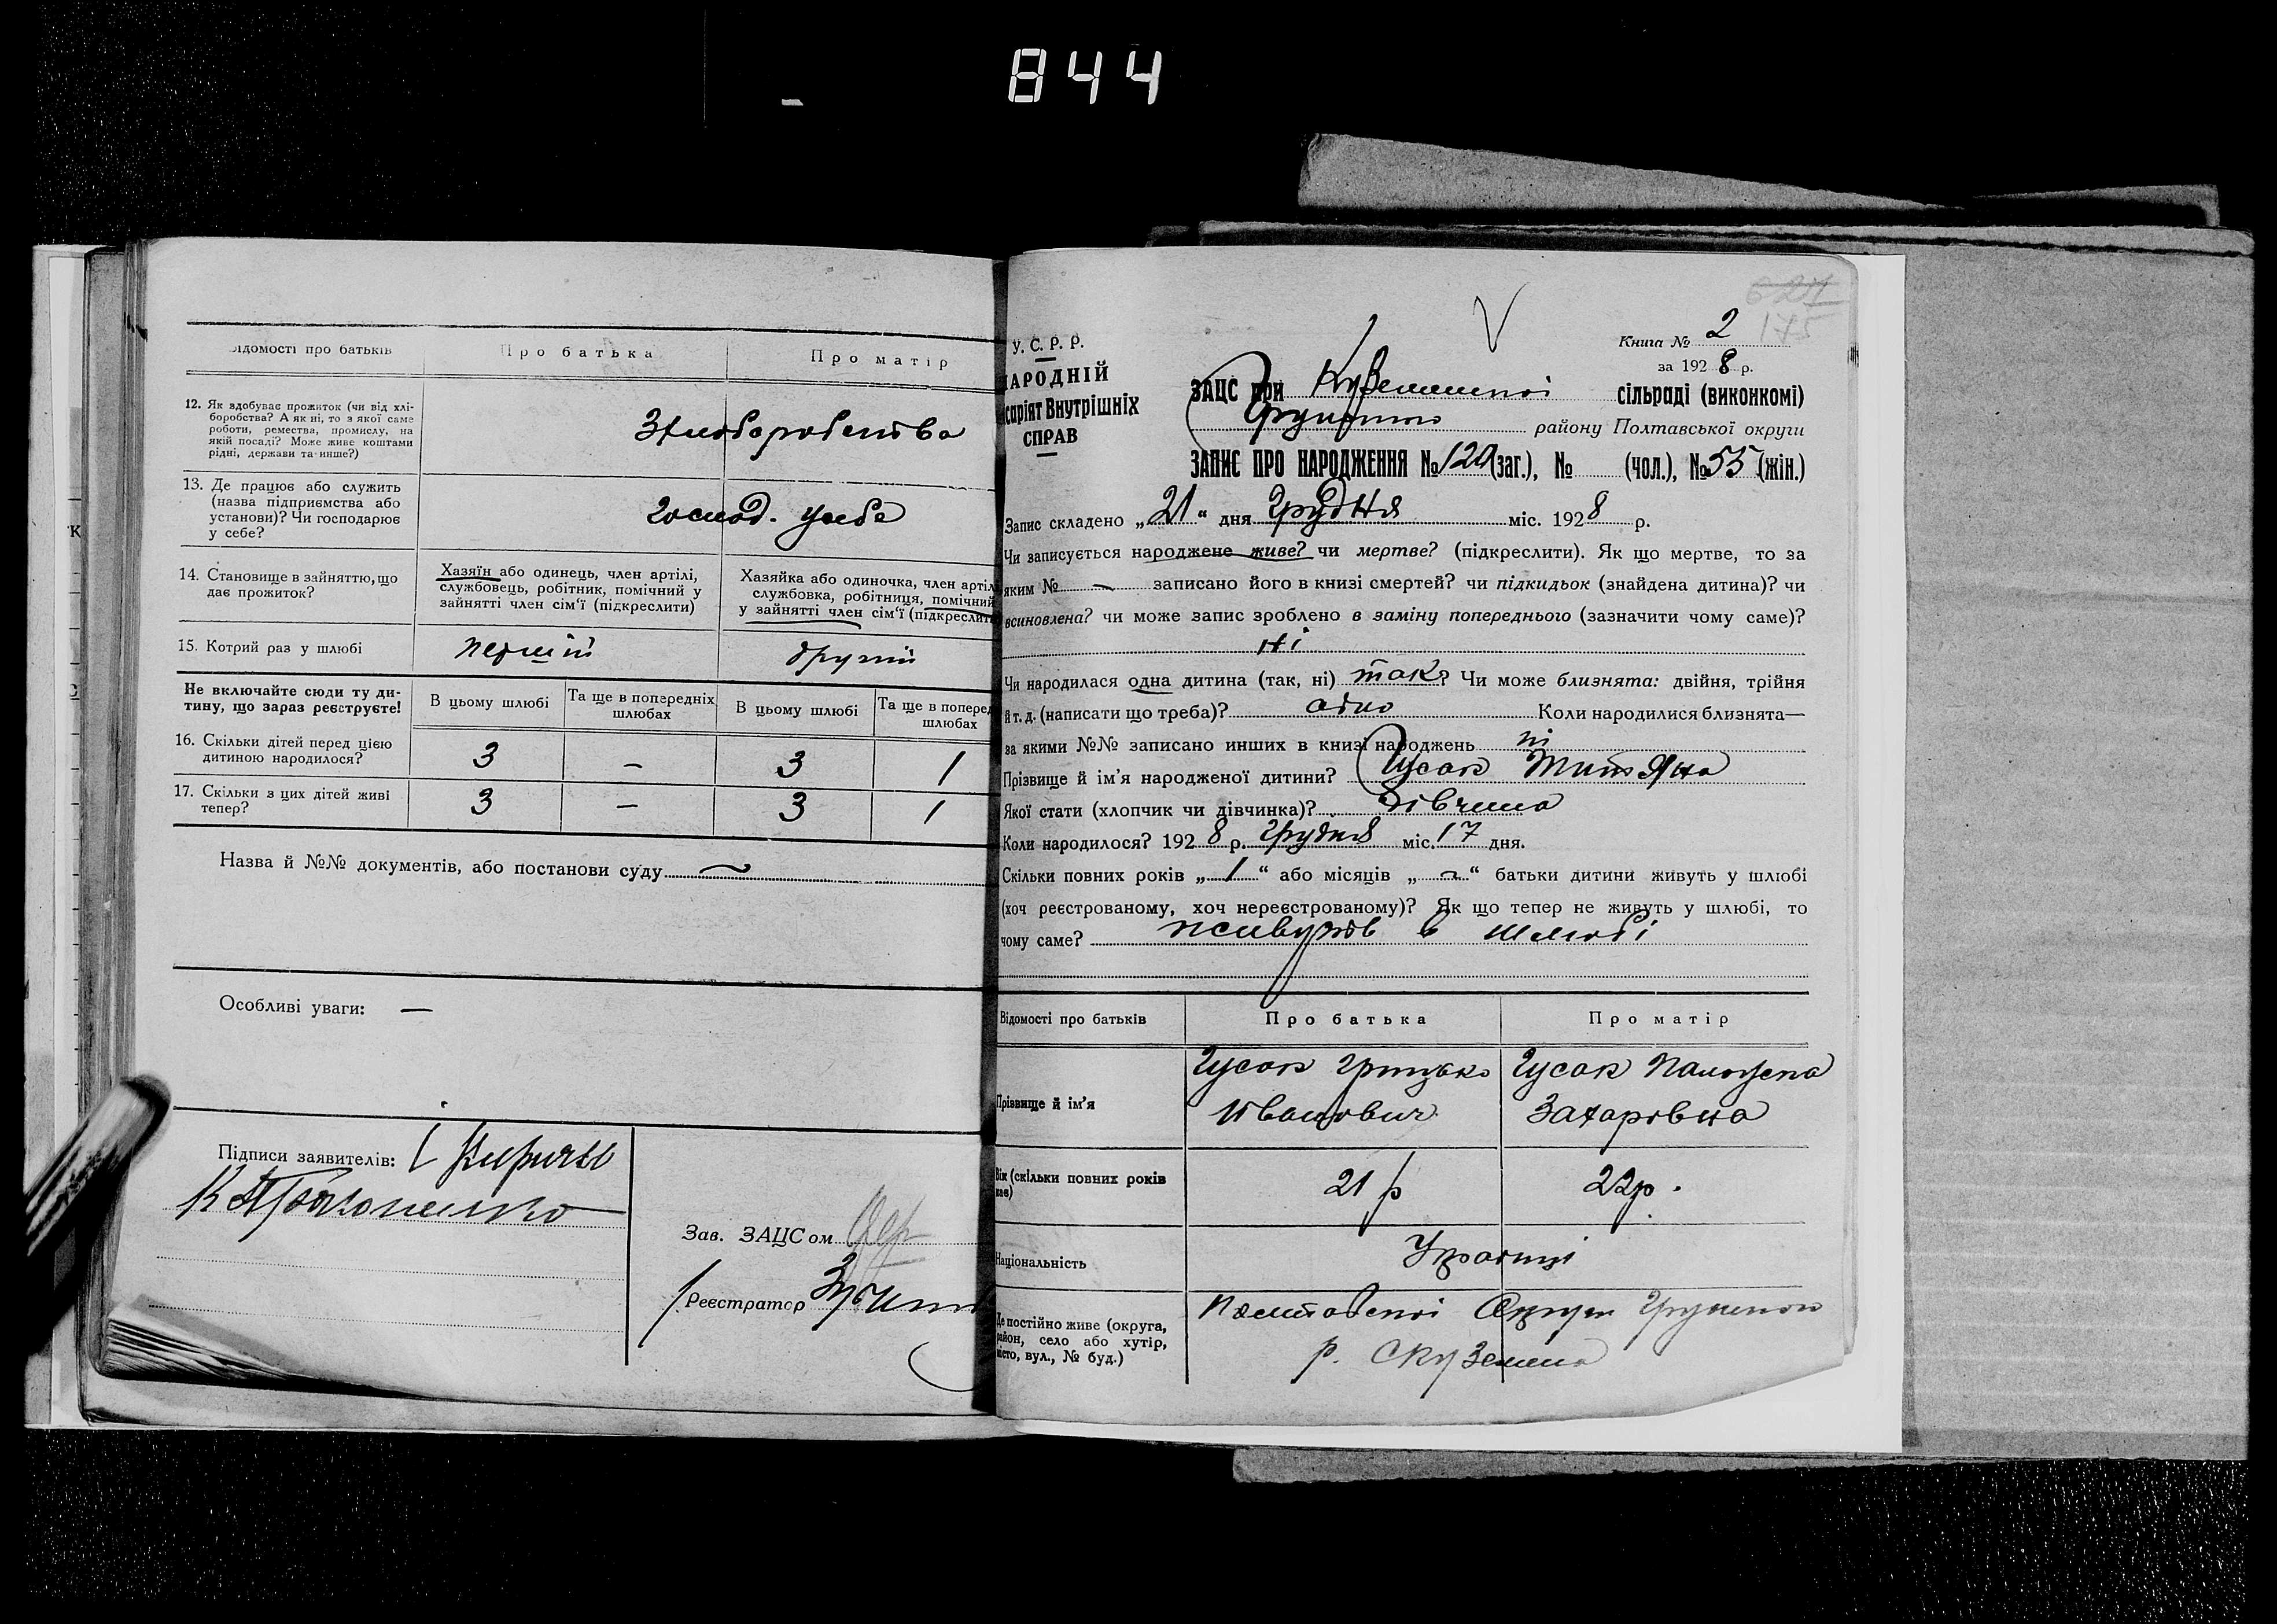 844
Відомості про батьків
Про батька
Про матір
12. Як здобуває прожиток (чи від хлі-
боробства? А як ні, то з якої саме
роботи, ремества, промислу, на
якій посаді? Може живе коштами
рідні, держави та инше?)
З хлоборобства
13. Де працює або служить
(назва підприємства або
установи)? Чи господарює
у себе?
господ. у себе
14. Становище в зайняттю, що
дає прожиток?
Хазяїн або одинець, член артілі,
службовець, робітник, помічний у
зайнятті член сім'ї (підкреслити)
Хазяйка або одиночка, член артіл
службовка, робітниця, помічний
у зайнятті член сім'ї (підкреслит
15. Котрий раз у шлюбі
перший
другий
Не включайте сюди ту ди-
тину, що зараз реєструєте!
В цьому шлюбі
Та ще в попередніх
шлюбах
В цьому шлюбі
Та ще в поперед
шлюбах
16. Скільки дітей перед цією
дитиною народилося?
3 – 3 1
17. Скільки з цих дітей живі
тепер?
3 – 3 1
Назва й №№ документів, або постанови суду
Особливі уваги: —
Підписи заявителів:
Зав. ЗАЦСом
Реєстратор
У. С. Р. Р.
НАРОДНІЙ
саріят Внутрішніх
СПРАВ
175
Книга № 2
за 1928 р.
ЗАЦС при Куземинскі сільраді (виконкомі)
району Полтавської округи
ЗАПИС ПРО НАРОДЖЕННЯ № 120 (заг.), № (чол.), № 55 (жін.)
Запис складено „21" дня Грудня міс. 1928 р.
Чи записується народжене живе? чи мертве? (підкреслити). Як що мертве, то за
яким № — записано його в книзі смертей? чи підкидьок (знайдена дитина)? чи
всиновлена? чи може запис зроблено в заміну попереднього (зазначити чому саме)?
Ні
Чи народилася одна дитина (так, ні) так? Чи може близнята: двійня, трійня
й т. д. (написати що треба)? одно Коли народилися близнята—
за якими №№ записано инших в книзі народжень ні
Прізвище й ім'я народженої дитини? Гусак Титяна
Якої стати (хлопчик чи дівчинка)? дівчина
Коли народилося? 1928 р. грудня міс. 17 дня.
Скільки повних років „1" або місяців „–" батьки дитини живуть у шлюбі
(хоч реєстрованому, хоч нереєстрованому)? Як що тепер не живуть у шлюбі, то
чому саме? живуть в шлюбі
Відомості про батьків
Про батька
Про матір
Прізвище й ім'я
Гусак Грицько
Іванович
Гусак Палажка
Захаровна
Вік (скільки повних років
має)
21 р
22 р.
Національність
Українці
Де постійно живе (округа,
район, село або хутір,
місто, вул., № буд.)
Полтавскої Округи Грунскои
р. С Куземена